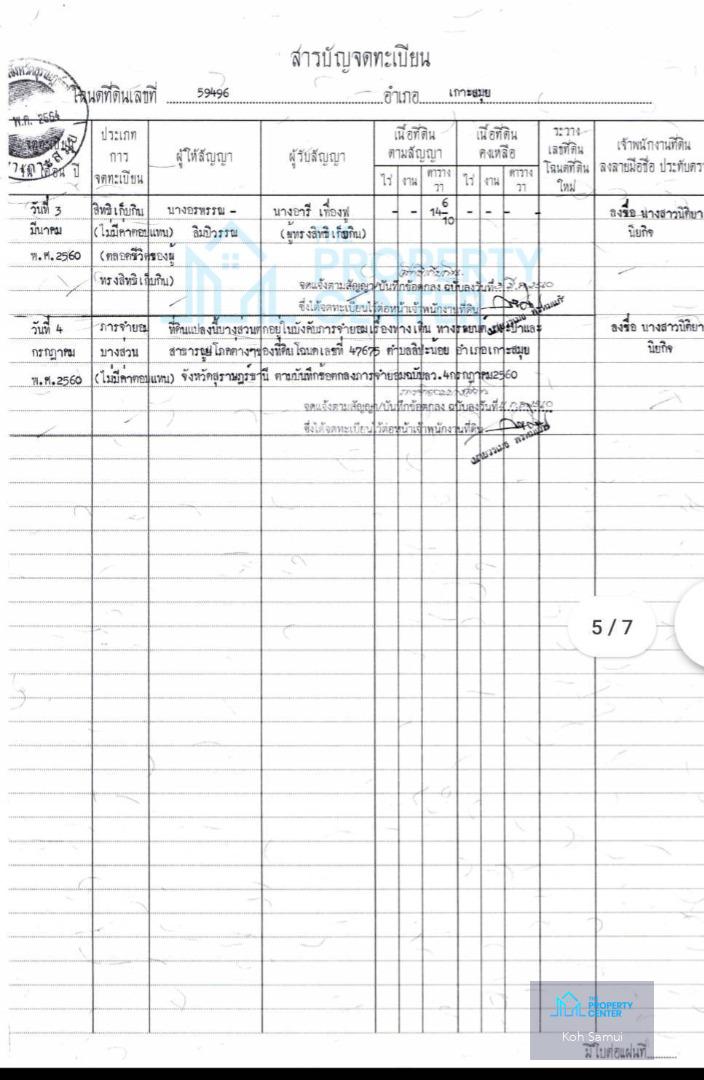 สารบัญจดทะเบียน
โฉนดที่ดินเลขที่ 59496 อำเภอ เกาะสมุย
พ.ค. 2564
ประเภท
การ
จดทะเบียน
ผู้ให้สัญญา
ผู้รับสัญญา
เนื้อที่ดิน
ตามสัญญา
ไร่ งาน ตาราง
วา
เนื้อที่ดิน
คงเหลือ
ไร่ งาน ตาราง
วา
ระวาง
เลขที่ดิน
โฉนดที่ดิน
ใหม่
เจ้าพนักงานที่ดิน
ลงลายมือชื่อ ประทับตรา
วันที่ 3 สิทธิเก็บกิน นางอรพรรณ - นางอารี เฟื่องฟู - - 14 6/10 - - - - ลงชื่อ นางสาวนิติยา
มีนาคม (ไม่มีค่าตอบแทน) ลิมปิวรรณ (ผู้ทรงสิทธิเก็บกิน) นิยกิจ
พ.ศ.2560 (ตลอดชีวิตของผู้
ทรงสิทธิเก็บกิน)
จดแจ้งตามสัญญา/บันทึกข้อตกลง ฉบับลงวันที่
ซึ่งได้จดทะเบียนไว้ต่อหน้าเจ้าพนักงานที่ดิน
วันที่ 4 ภาระจำยอม ที่ดินแปลงนี้บางส่วนตกอยู่ในบังคับภาระจำยอมเรื่องทางเดิน ทางรถยนต์ และ
ลงชื่อ นางสาวนิติยา
กรกฎาคม บางส่วน สาธารณูปโภคต่างๆของที่ดินโฉนดเลขที่ 47675 ตำบลลิปะน้อย อำเภอเกาะสมุย
นิยกิจ
พ.ศ.2560 (ไม่มีค่าตอบแทน) จังหวัดสุราษฎร์ธานี ตามบันทึกข้อตกลงภาระจำยอมฉบับลว.4กรกฎาคม2560
จดแจ้งตามสัญญา/บันทึกข้อตกลง ฉบับลงวันที่
ซึ่งได้จดทะเบียนไว้ต่อหน้าเจ้าพนักงานที่ดิน
PROPERTY
CENTER
5 / 7
THE
PROPERTY
CENTER
Koh Samui
มีใบต่อแผ่นที่